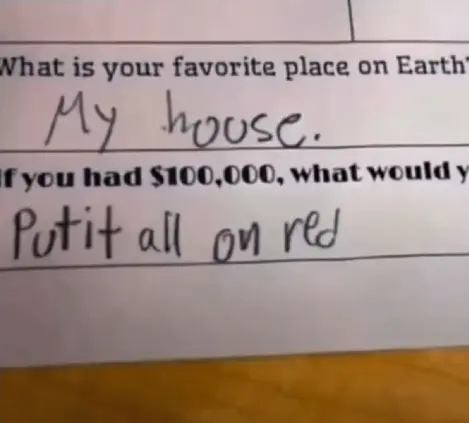 What is your favorite place on Earth?
My house.
If you had $100,000, what would y
Put it all on red